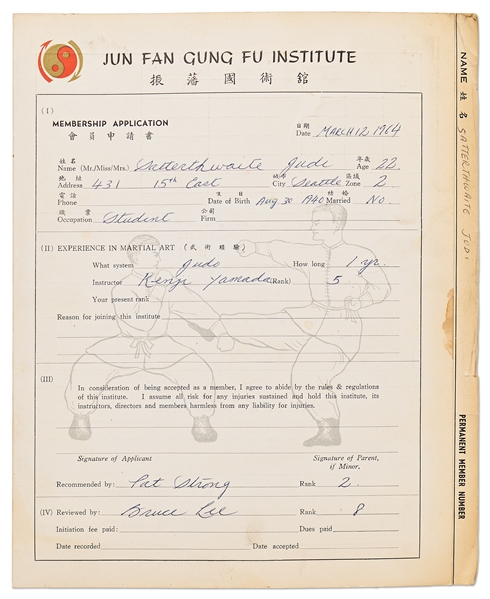 JUN FAN GUNG FU INSTITUTE
振藩國術館
(I)
MEMBERSHIP APPLICATION
會員申請書
日期
Date MARCH 12, 1964
姓名 年歲
Name (Mr./Miss/Mrs.) Satterthwaite Judi Age 22
地址 城市 區域
Address 431 15th East City Seattle Zone 2
電話 生日 結婚
Phone Date of Birth Aug 30 1940 Married No.
職業 公司
Occupation Student Firm
(II) EXPERIENCE IN MARTIAL ART (武術經驗)
What system judo How long 1 yr.
Instructor Kenji Yamada (Rank) 5
Your present rank
Reason for joining this institute
(III)
In consideration of being accepted as a member, I agree to abide by the rules & regulations
of this institute. I assume all risk for any injuries sustained and hold this institute, its
instructors, directors and members harmless from any liability for injuries.
Signature of Applicant Signature of Parent,
if Minor.
Recommended by: Pat Strong Rank 2.
(IV) Reviewed by: Bruce Lee Rank 8
Initiation fee paid: Dues paid:
Date recorded Date accepted
NAME 姓名 SATTERTHWAITE JUDI
PERMANENT MEMBER NUMBER